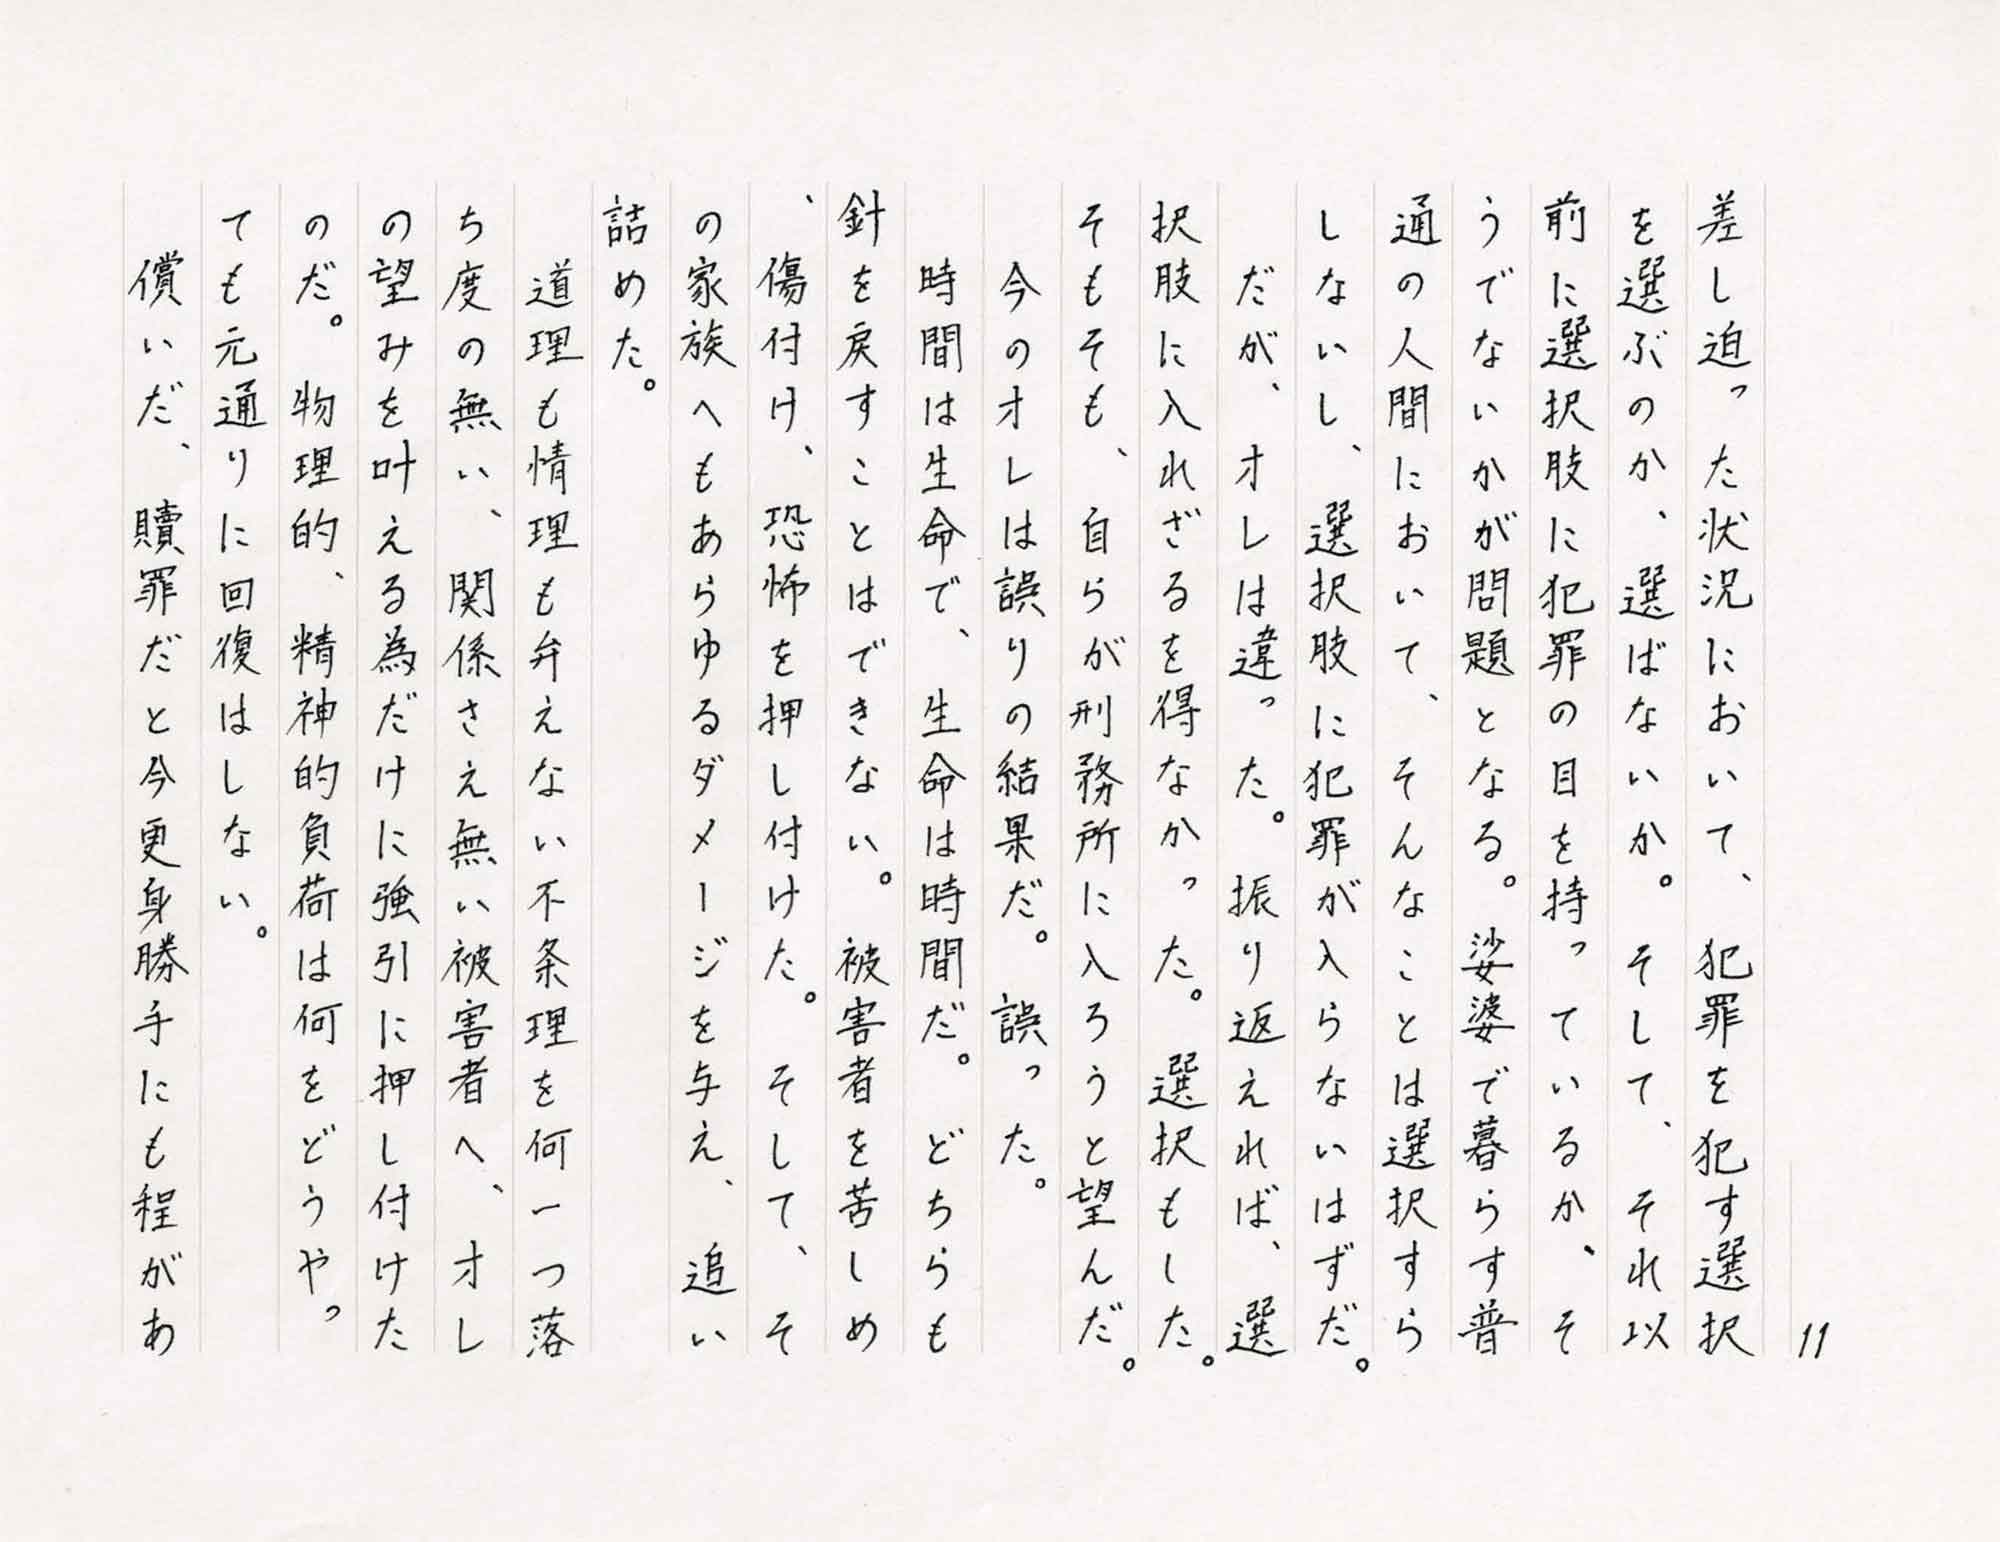 11
差し迫った状況において、犯罪を犯す選択
を選ぶのか、選ばないか。そして、それ以
前に選択肢に犯罪の目を持っているか、そ
うでないかが問題となる。娑婆で暮らす普
通の人間において、そんなことは選択すら
しないし、選択肢に犯罪が入らないはずだ。
だが、オレは違った。振り返えれば、選
択肢に入れざるを得なかった。選択もした。
そもそも、自らが刑務所に入ろうと望んだ。
今のオレは誤りの結果だ。誤った。
時間は生命で、生命は時間だ。どちらも
針を戻すことはできない。被害者を苦しめ
、傷付け、恐怖を押し付けた。そして、そ
の家族へもあらゆるダメージを与え、追い
詰めた。
道理も情理も弁えない不条理を何一つ落
ち度の無い、関係さえ無い被害者へ、オレ
の望みを叶える為だけに強引に押し付けた
のだ。物理的、精神的負荷は何をどうやっ
ても元通りに回復はしない。
償いだ、贖罪だと今更身勝手にも程があ